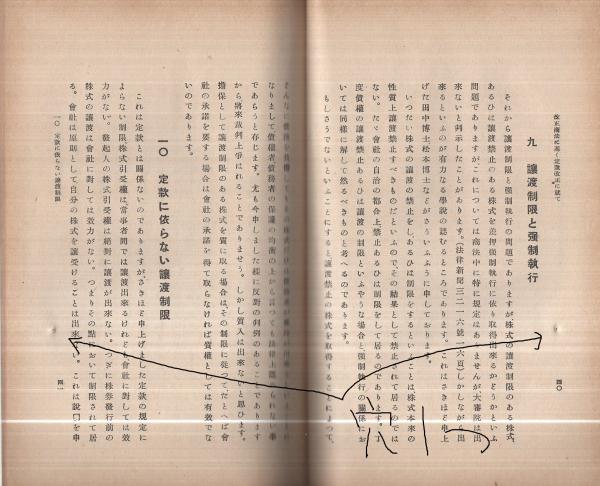 改正商法に基く定款改正に就て
九　讓渡制限と强制執行
それから讓渡制限と强制執行の問題でありますが、株式の讓渡制限のある株式、
あるひは讓渡禁止のある株式を差押强制執行に依り取得出來るかどうかといふ
問題でありますが、これについては商法中に特に規定はありませんが大審院は出
來ないと判示したことがあります。(法律新聞三二一六號一六頁)しかしながら出
來るといふのが有力なる學說の認むるところであります。これはさきほど申上
げた田中博士、松本博士などがさういふふうに申しております。
いつたい株式の讓渡の禁止をし、あるひは制限をするといふことは株式本來の
性質上讓渡禁止すべきものだといふので、その結果として禁止されて居るのでは
ない。たゞ會社の自治の都合上禁止あるひは制限をして居るのであります。丁
度債權の讓渡禁止あるひは讓渡の制限といふやうな場合と强制執行の關係にお
いては同樣に解して然るべきものと考へるのであります。
もしさうでないといふことにすると讓渡禁止の株式を取得することによつて、
四〇
なりまして債權者債務者の保護の均衡の上から言つても
であらうと存じます。尤も今申しました樣に反對の判例のあることであります
から將來裁判上爭はれることでありませう。しかし質入は出來ないと思ひます。
擔保として讓渡制限のある株式を質に取る場合は、その制限に從つて、たとへば會
社の承諾を要する場合は會社の承諾を得て取らなければ質權としては有效でな
いのであります。
一〇　定款に依らない讓渡制限
これは定款とは關係ないのでありますが、さきほど申上げました定款の規定に
よらない制限、株式引受權は當事者間では讓渡出來るけれども會社に對しては效
力がない。發起人の株式引受權は絕對に讓渡が出來ない。つぎに株券發行前の
株式の讓渡は會社に對しては效力がない。つまりその點において制限されて居
る。會社は原則として自分の株式を讓受けることは出來ない。これは說を申
一〇　定款に依らない讓渡制限
四一